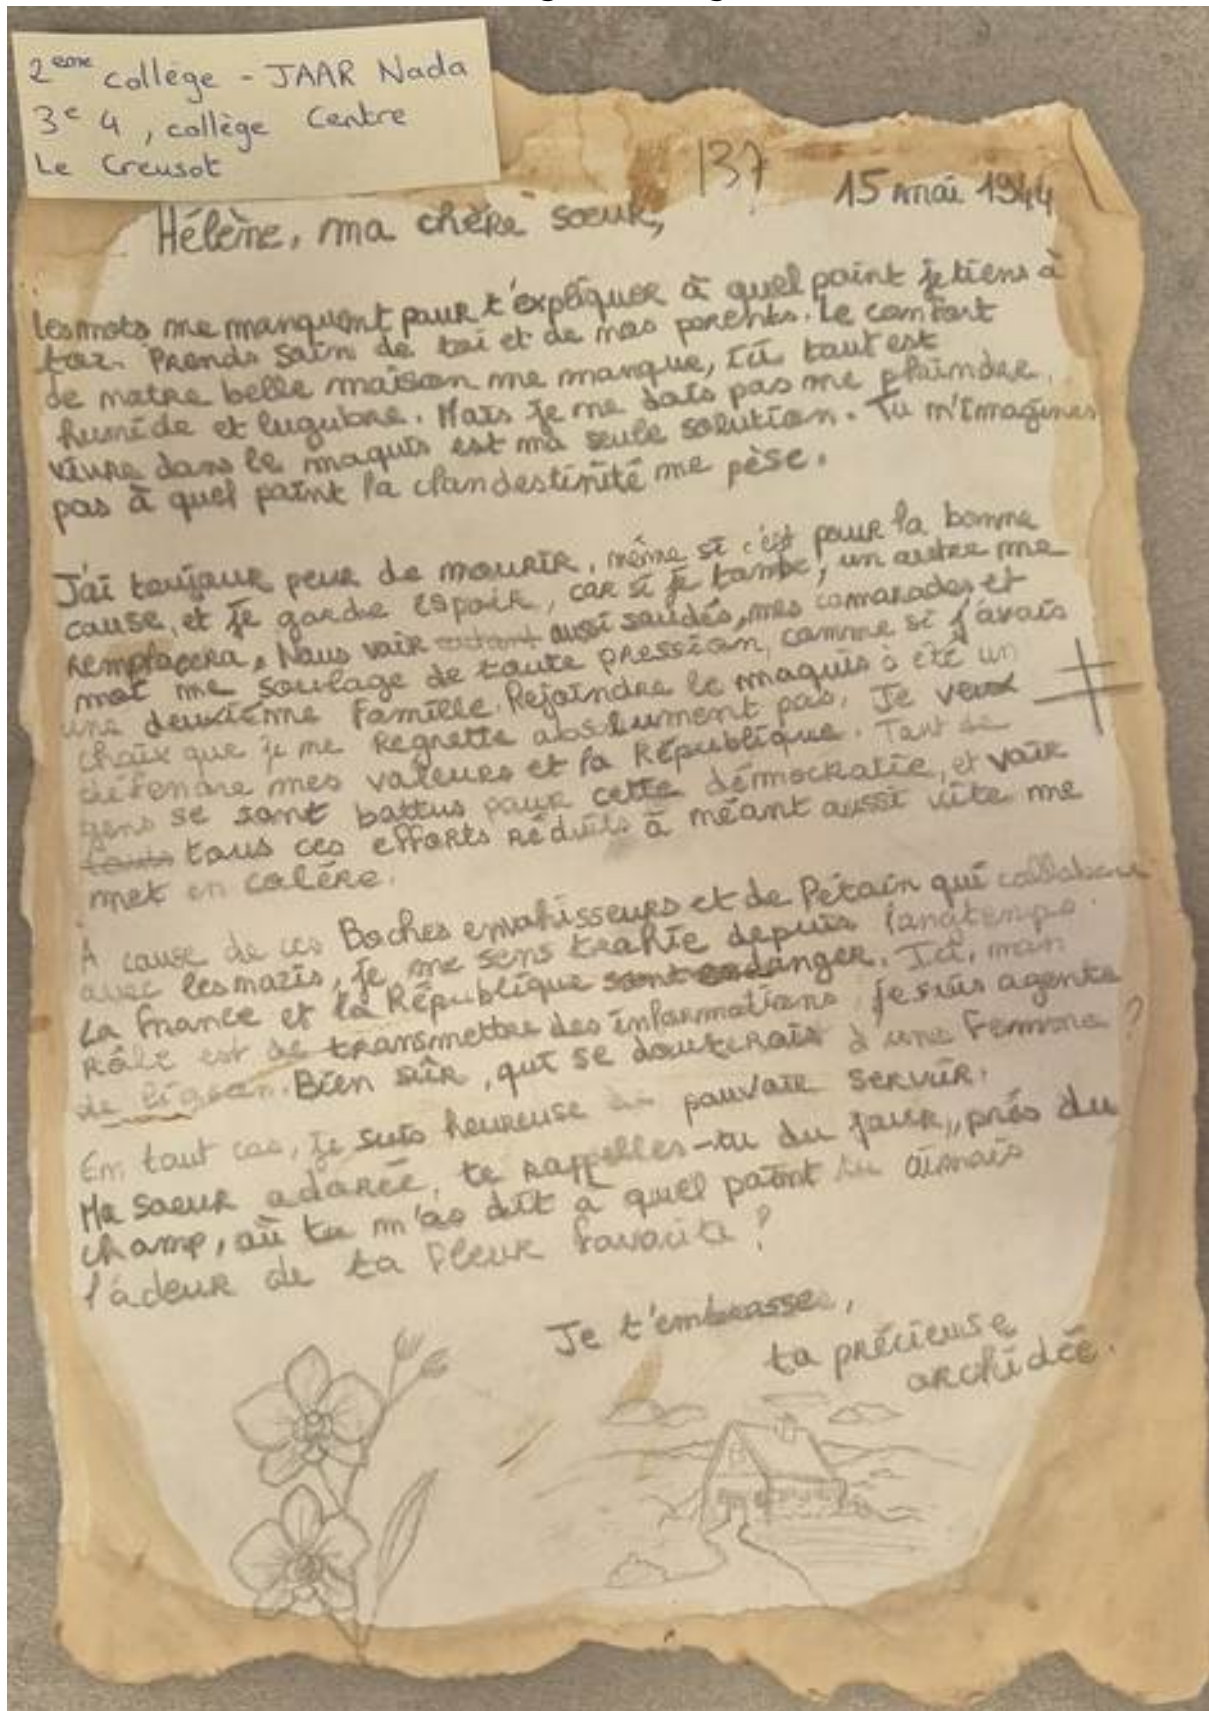 2eme collège - JAAR Nada
3e 4, collège Centre
Le Creusot
137
15 mai 1944
Hélène, ma chère sœur,
Les mots me manquent pour t'expliquer à quel point je tiens à
toi. Prends soin de toi et de nos parents. Le confort
de notre belle maison me manque, ici tout est
humide et lugubre. Mais je ne dois pas me plaindre,
vivre dans le maquis est ma seule solution. Tu n'imagines
pas à quel point la clandestinité me pèse.
J'ai toujour peur de mourir, même si c'est pour la bonne
cause, et je garde espoir, car si je tombe, un autre me
remplacera. Nous voir aussi soudés, mes camarades et
moi me soulage de toute pression, comme si j'avais
une deuxième famille. Rejoindre le maquis à été un
choix que je ne regrette abslument pas. Je veux
défendre mes valeurs et la République. Tant de
gens se sont battus pour cette démocratie, et voir
touts tous ces efforts réduits à néant aussi vite me
met en colère.
A cause de ces Boches envahisseurs et de Pétain qui collabore
avec les nazis, je me sens trahie depuis longtemps.
La France et la République sont en danger. Ici, mon
rôle est de transmettre des informations, je suis agente
de liaison. Bien sûr, qui se douterait d'une femme ?
En tout cas, je suis heureuse de pouvoir servir.
Ma soeur adorée, te rappelles-tu du jour, près du
champ, où tu m'as dit à quel point tu aimais
l'odeur de ta fleur favorite ?
Je t'embrasse,
ta précieuse
orchidée.